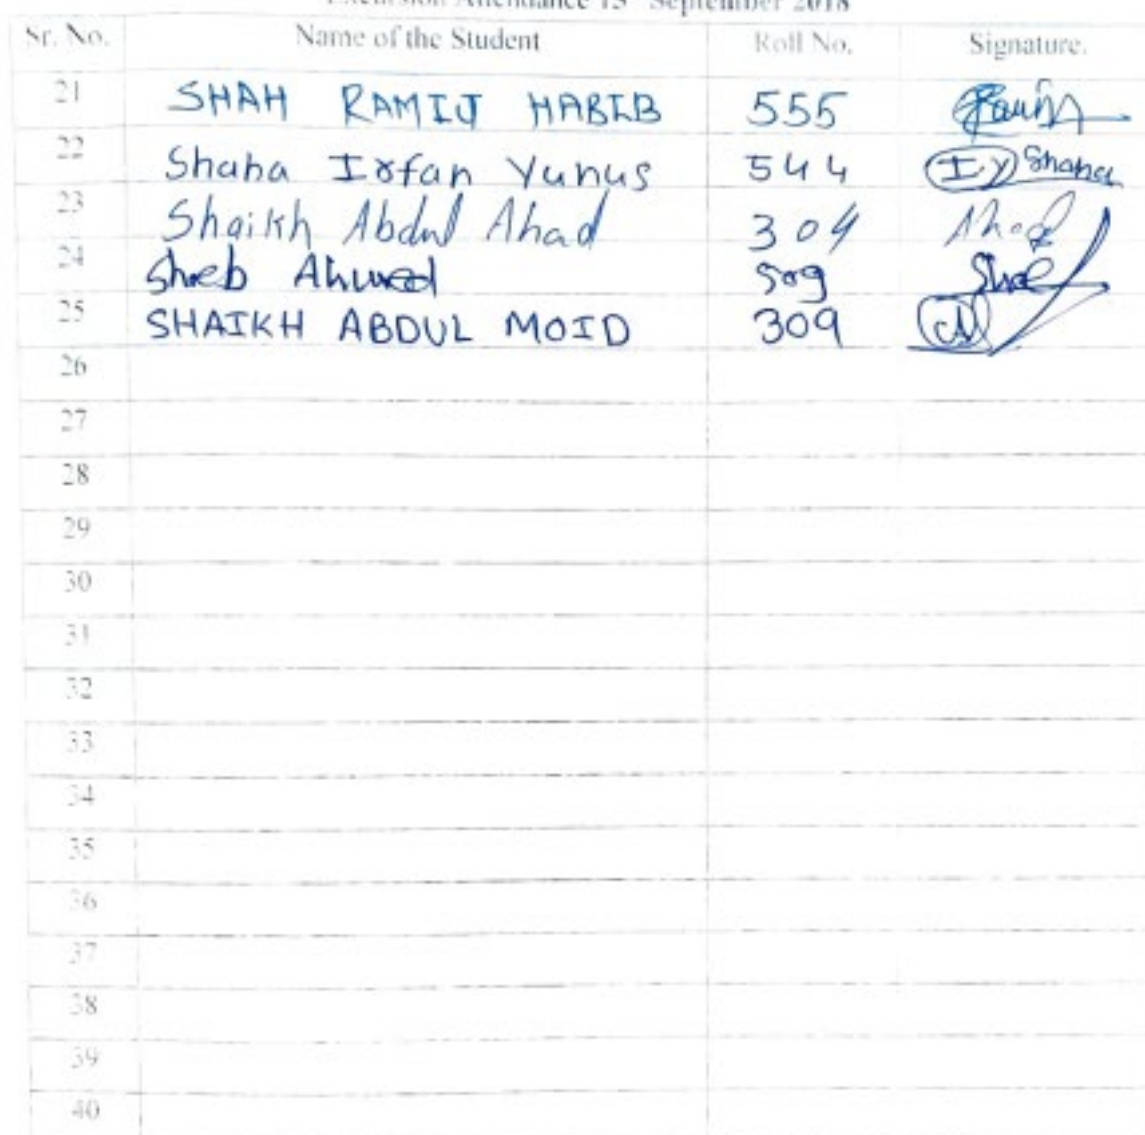 Excursion Attendance 15 September 2018
Sr. No. Name of the Student Roll No. Signature.
21 SHAH RAMIJ HABIB 555
22 Shaha Irfan Yunus 544 I.Y Shaha
23 Shaikh Abdul Ahad 304 Ahad
24 Sheb Ahmed 509
25 SHAIKH ABDUL MOID 309
26
27
28
29
30
31
32
33
34
35
36
37
38
39
40